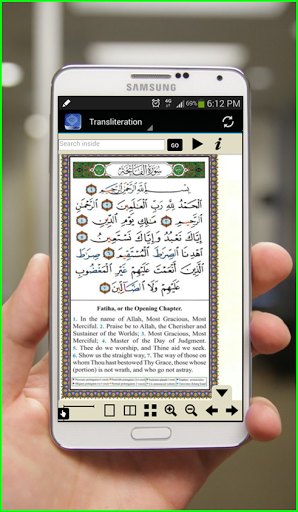 SAMSUNG
4G 69% 6:12 PM
Transliteration
Search inside GO i
سُورَةُ الْفَاتِحَةِ
بِسْمِ اللَّهِ الرَّحْمَٰنِ الرَّحِيمِ
الْحَمْدُ لِلَّهِ رَبِّ الْعَالَمِينَ الرَّحْمَٰنِ
الرَّحِيمِ مَالِكِ يَوْمِ الدِّينِ
إِيَّاكَ نَعْبُدُ وَإِيَّاكَ نَسْتَعِينُ
اهْدِنَا الصِّرَاطَ الْمُسْتَقِيمَ صِرَاطَ
الَّذِينَ أَنْعَمْتَ عَلَيْهِمْ غَيْرِ الْمَغْضُوبِ
عَلَيْهِمْ وَلَا الضَّالِّينَ
Fatiha, or the Opening Chapter.
1. In the name of Allah, Most Gracious, Most
Merciful. 2. Praise be to Allah, the Cherisher and
Sustainer of the Worlds; 3. Most Gracious, Most
Merciful; 4. Master of the Day of Judgment.
5. Thee do we worship, and Thine aid we seek.
6. Show us the straight way, 7. The way of those on
whom Thou hast bestowed Thy Grace, those whose
(portion) is not wrath, and who go not astray.